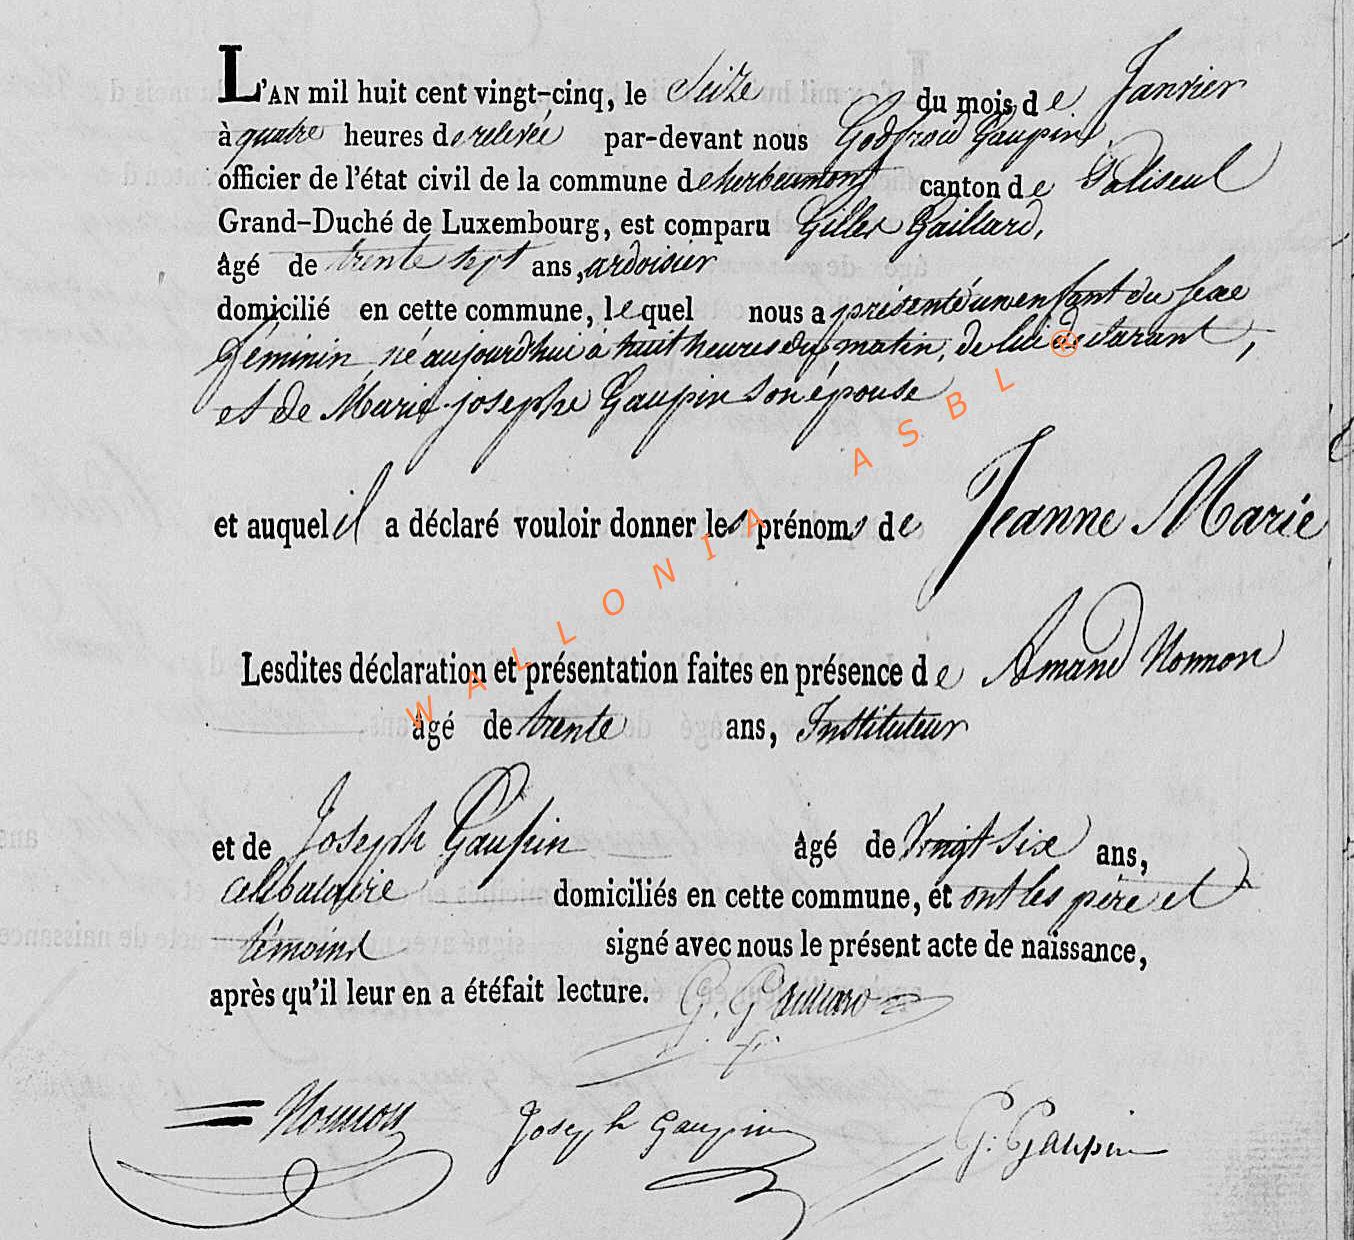 L'AN mil huit cent vingt-cinq, le Seize du mois de Janvier
à quatre heures de relevée par-devant nous Godfroid Gaupin
officier de l'état civil de la commune de herbeumont canton de Paliseul
Grand-Duché de Luxembourg, est comparu Gilles Gaillard,
âgé de trente sept ans, ardoisier
domicilié en cette commune, lequel nous a présenté un enfant du sexe
féminin, né aujourd'hui à huit heures du matin, de lui déclarant,
et de Marie joseph Gaupin son épouse
et auquel il a déclaré vouloir donner les prénoms de Jeanne Marie
Lesdites déclaration et présentation faites en présence de Amand Nonnon
âgé de trente ans, Instituteur
et de Joseph Gaupin âgé de Vingt six ans,
célibataire domiciliés en cette commune, et ont les père et
témoins signé avec nous le présent acte de naissance,
après qu'il leur en a étéfait lecture. G. Gaillard
Nonnon Joseph Gaupin G. Gaupin
WALLONIA ASBL ®